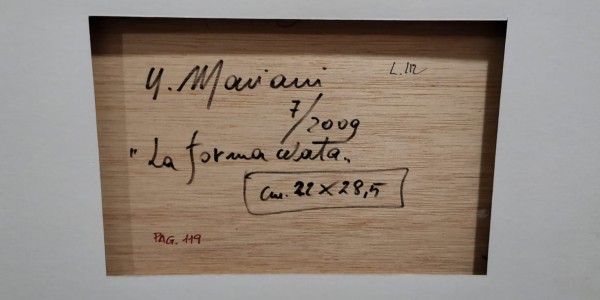 U. Mariani
L.112
7/2009
"La forma celata„
cm. 22 X 28,5
PAG. 119